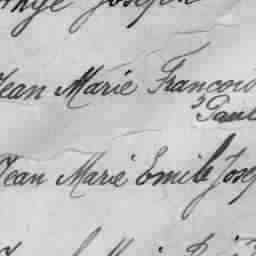 Ange Joseph
Jean Marie Francois
Paul
Jean Marie Emile Jose